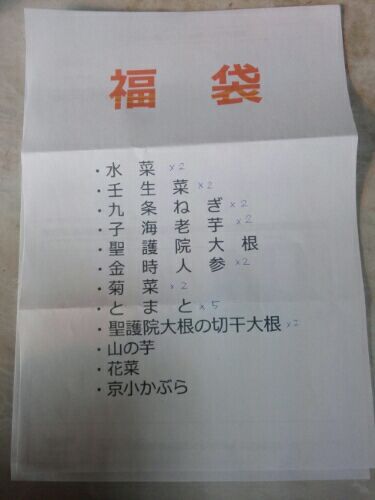 福袋
・水菜 ×2
・壬生菜 ×2
・九条ねぎ ×2
・子海老芋 ×2
・聖護院大根
・金時人参 ×2
・菊菜 ×2
・とまと ×5
・聖護院大根の切干大根 ×2
・山の芋
・花菜
・京小かぶら